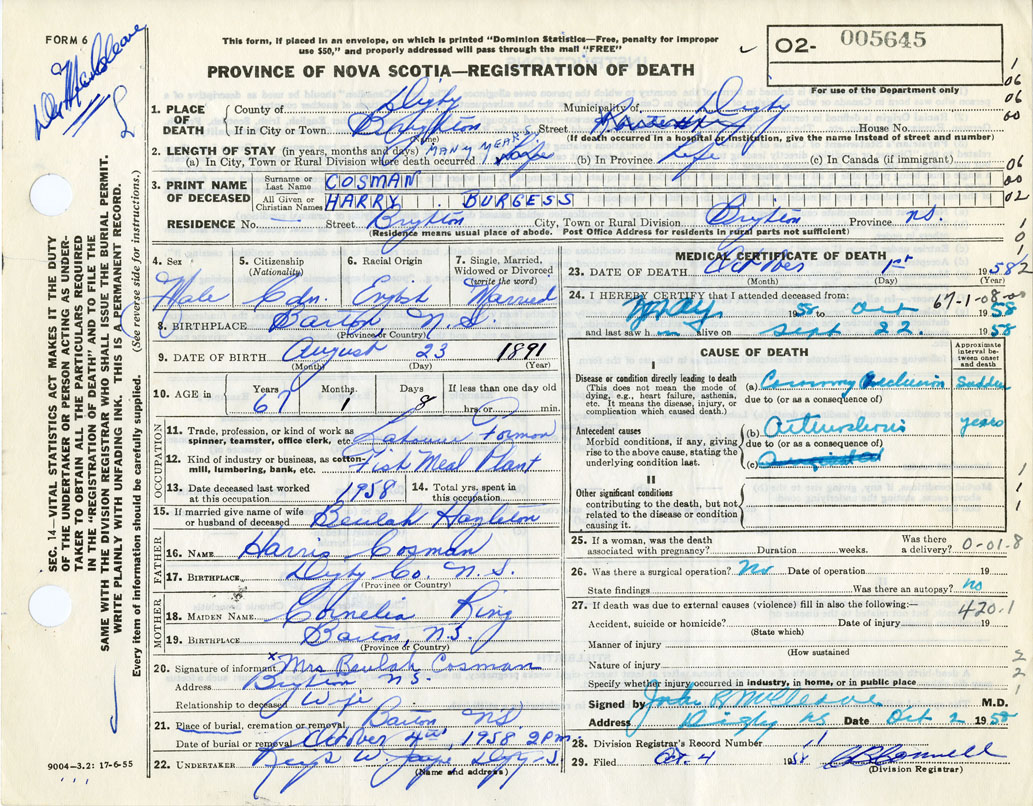 FORM 6
This form, if placed in an envelope, on which is printed "Dominion Statistics—Free, penalty for improper
use $50," and properly addressed will pass through the mail "FREE"
O2- 005645
For use of the Department only
PROVINCE OF NOVA SCOTIA—REGISTRATION OF DEATH
SEC. 14—VITAL STATISTICS ACT MAKES IT THE DUTY
OF THE UNDERTAKER OR PERSON ACTING AS UNDER-
TAKER TO OBTAIN ALL THE PARTICULARS REQUIRED
IN THE "REGISTRATION OF DEATH" AND TO FILE THE
SAME WITH THE DIVISION REGISTRAR WHO SHALL ISSUE THE BURIAL PERMIT.
WRITE PLAINLY WITH UNFADING INK. THIS IS A PERMANENT RECORD.
Every item of information should be carefully supplied. (See reverse side for instructions.)
1. PLACE OF DEATH County of Digby Municipality of Digby
If in City or Town Brighton Street House No.
(If death occurred in a hospital or institution, give the name instead of street and number)
2. LENGTH OF STAY (in years, months and days) MANY YEARS
(a) In City, Town or Rural Division where death occurred (b) In Province Life (c) In Canada (if immigrant)
3. PRINT NAME OF DECEASED Surname or Last Name COSMAN
All Given or Christian Names HARRY BURGESS
RESIDENCE No. — Street Brighton City, Town or Rural Division Brighton Province N.S.
(Residence means usual place of abode. Post Office Address for residents in rural parts not sufficient)
4. Sex Male
5. Citizenship (Nationality) Cdn.
6. Racial Origin English
7. Single, Married, Widowed or Divorced (write the word) Married
8. BIRTHPLACE Barton N.S.
(Province or Country)
9. DATE OF BIRTH August 23 1891
(Month) (Day) (Year)
10. AGE in Years 67 Months 1 Days 8 If less than one day old hrs. or min.
OCCUPATION
11. Trade, profession, or kind of work as spinner, teamster, office clerk, etc. Labourer Forman
12. Kind of industry or business, as cotton-mill, lumbering, bank, etc. Fish Meal Plant
13. Date deceased last worked at this occupation 1958 14. Total yrs. spent in this occupation
15. If married give name of wife or husband of deceased Beulah
FATHER
16. NAME Harris Cosman
17. BIRTHPLACE Digby Co. N.S.
(Province or Country)
MOTHER
18. MAIDEN NAME Cornelia Ring
19. BIRTHPLACE Barton, N.S.
(Province or Country)
20. Signature of informant x Mrs Beulah Cosman
Address Brighton N.S.
Relationship to deceased Wife
21. Place of burial, cremation or removal Barton NS
Date of burial or removal October 4th, 1958 2 P.m.
22. UNDERTAKER W. Jayne Digby
(Name and address)
9004—3.2: 17-6-55
MEDICAL CERTIFICATE OF DEATH
23. DATE OF DEATH October 1st 1958
(Month) (Day) (Year)
24. I HEREBY CERTIFY that I attended deceased from: 67-1-08-00
May 1958 to Oct 1958
and last saw him alive on Sept 22. 1958
CAUSE OF DEATH
Approximate interval between onset and death
I
Disease or condition directly leading to death
(This does not mean the mode of dying, e.g., heart failure, asthenia, etc. It means the disease, injury, or complication which caused death.)
(a) Coronary occlusion Sudden
due to (or as a consequence of)
Antecedent causes
Morbid conditions, if any, giving rise to the above cause, stating the underlying condition last.
(b) Arteriosclerosis years
due to (or as a consequence of)
(c)
II
Other significant conditions
contributing to the death, but not related to the disease or condition causing it.
25. If a woman, was the death associated with pregnancy? Duration weeks. Was there a delivery? 0-01.8
26. Was there a surgical operation? No Date of operation 19
State findings Was there an autopsy? No
27. If death was due to external causes (violence) fill in also the following:— 420.1
Accident, suicide or homicide? Date of injury 19
(State which)
Manner of injury
(How sustained
Nature of injury
Specify whether injury occurred in industry, in home, or in public place
Signed by John R McCleave M.D.
Address Digby NS Date Oct 2 1958
28. Division Registrar's Record Number 11
29. Filed Oct. 4 1958
(Division Registrar)